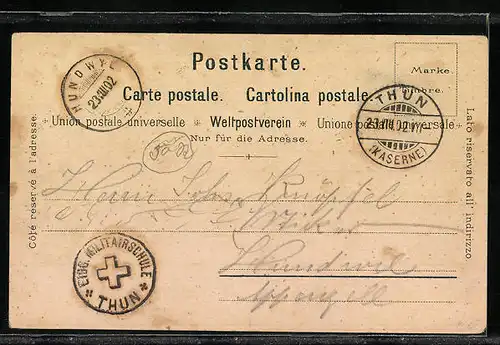 Postkarte.
Marke.
timbre.
Carte postale. Cartolina postale
Union postale universelle Weltpostverein Unione postale universale
Nur für die Adresse.
Côté réservé à l'adresse.
Lato riservaro all' indirizzo.
HUNDWYL
23.VIII.02
THUN
(KASERNE)
Herrn Johs.
Hundwil
Appenzell
EIDG. MILITAIRSCHULE
THUN